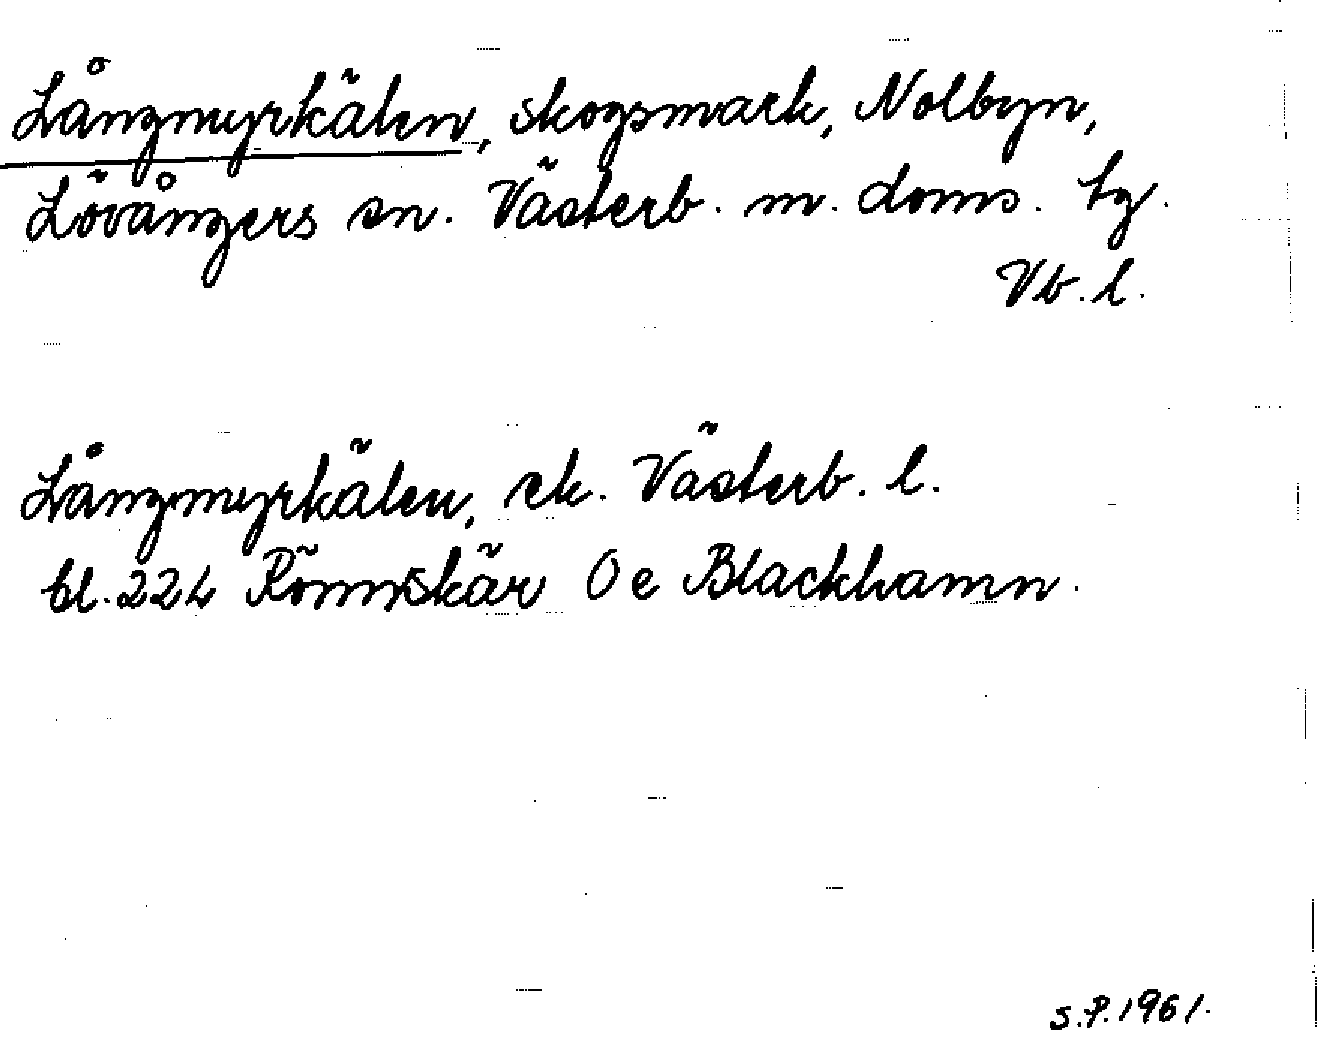 Långmyrkälen, skogsmark, Nolbyn,
Lövångers sn. Västerb. m. doms. tg.
Vb. l.
Långmyrkälen, ek. Västerb. l.
bl. 224 Rönnskär Oe Blackhamn.
S.P. 1961.